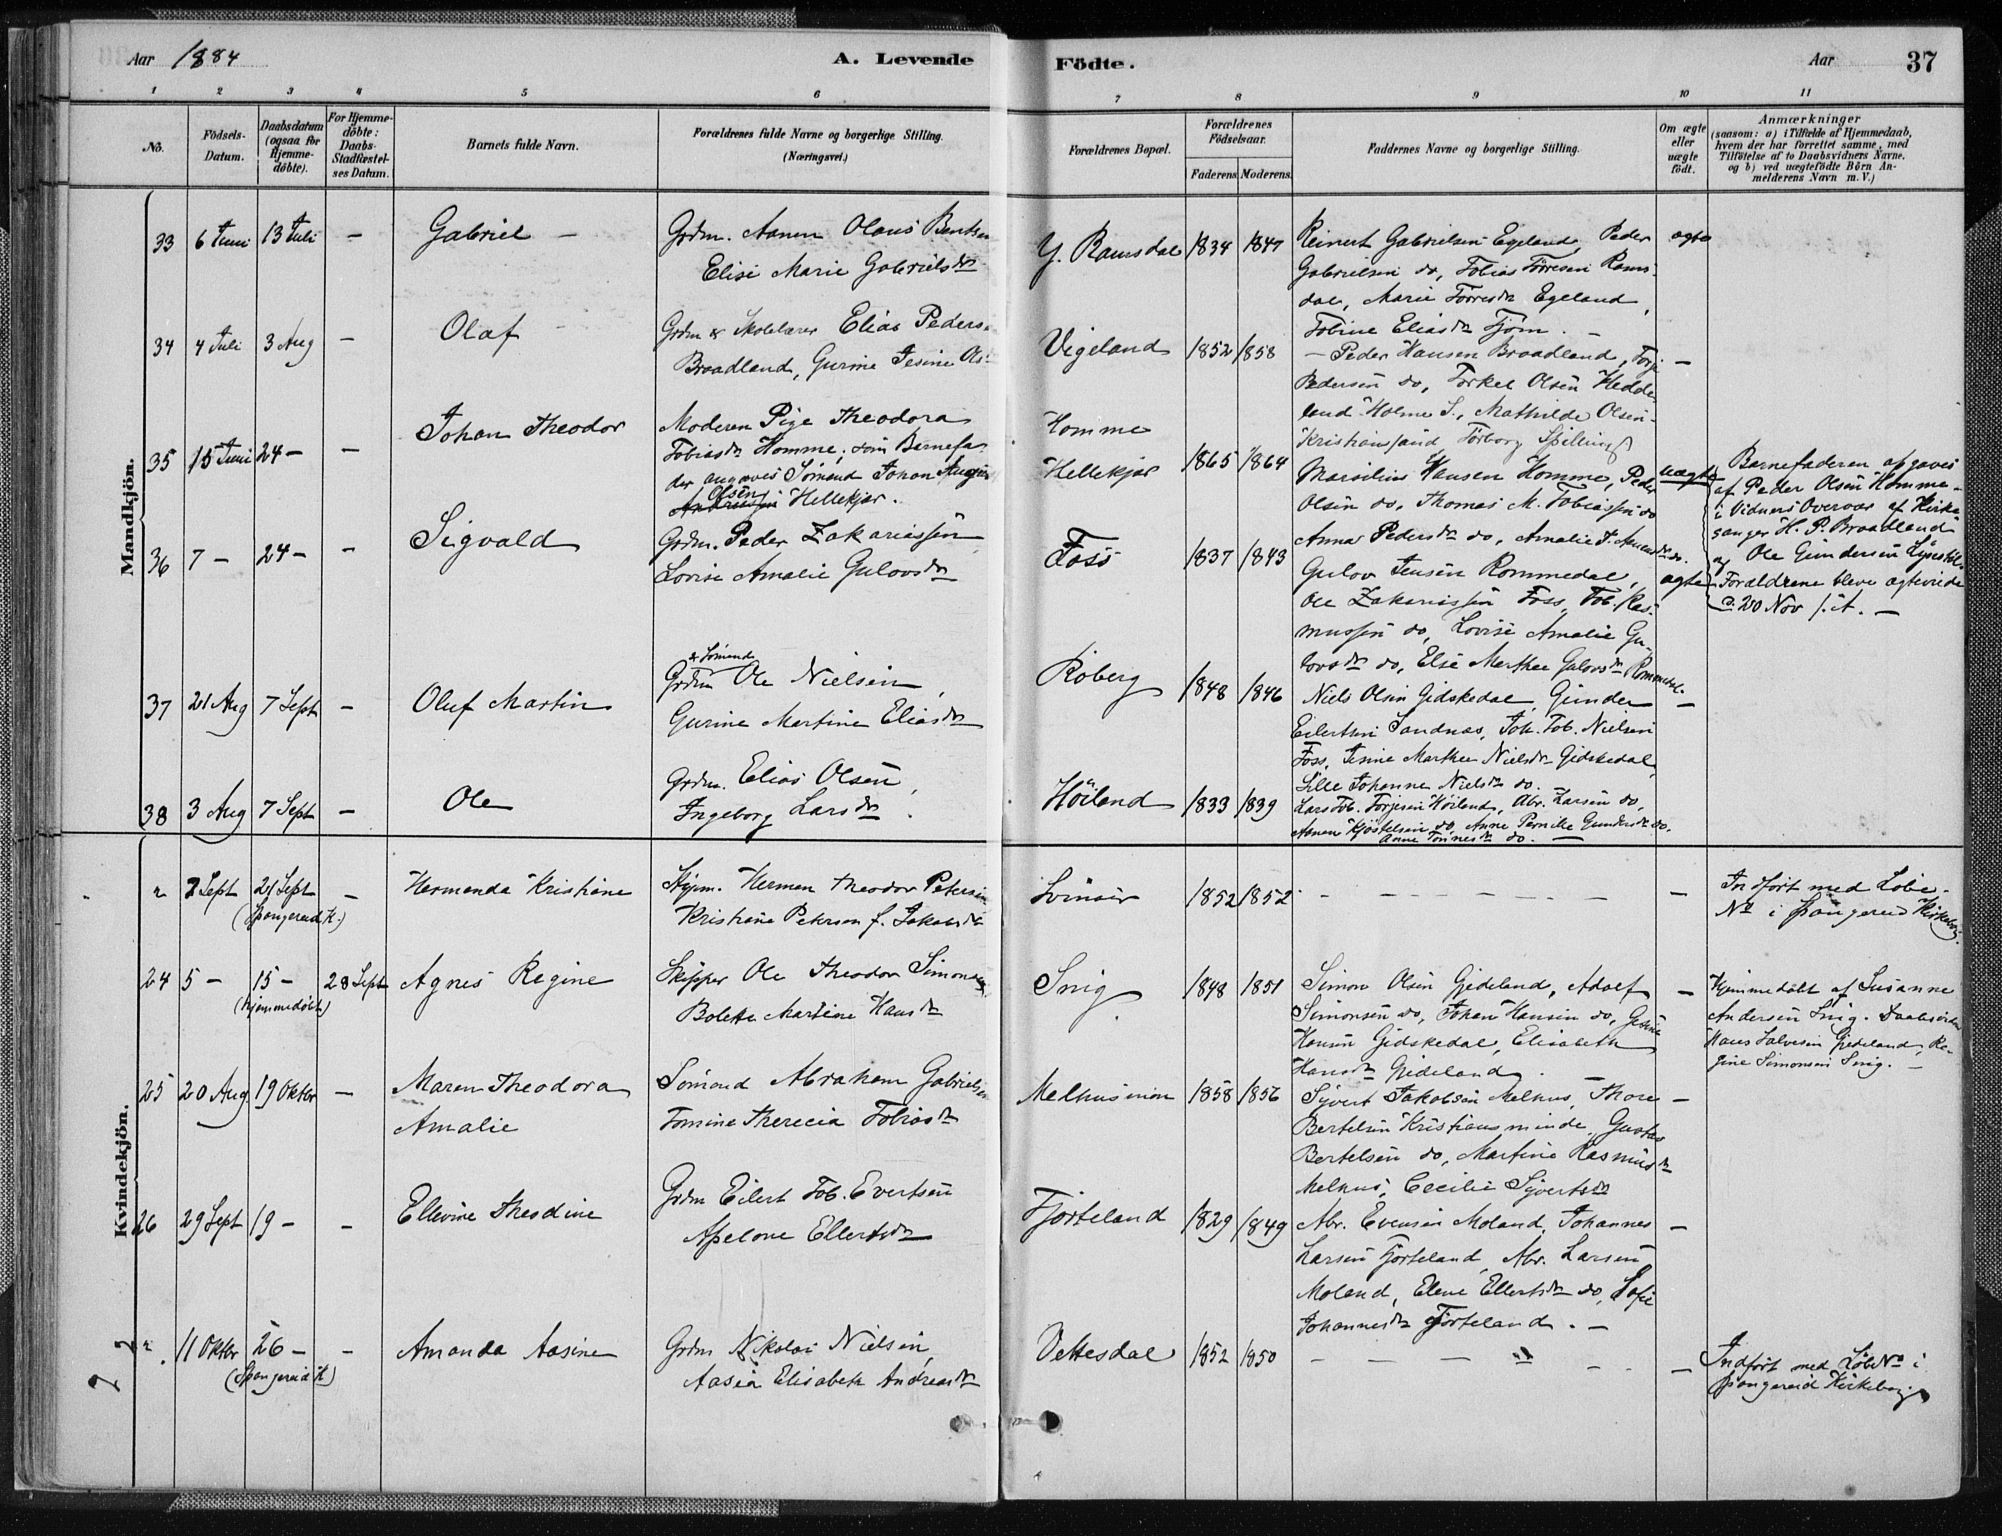 Aar 1884 A. Levende Födte. Aar 37
1 2 3 4 5 6 7 8 9 10 11
No. Födsels-Datum. Daabsdatum (ogsaa for Hjemme-döbte). For Hjemme-döbte: Daabs-Stadfæstel-ses Datum. Barnets fulde Navn. Forældrenes fulde Navne og borgerlige Stilling. (Næringsvei.) Forældrenes Bopæl. Forældrenes Födselsaar. Faderens Moderens Faddernes Navne og borgerlige Stilling. Om ægte eller uægte födt. Anmærkninger (saasom: a) i Tilfælde af Hjemmedaab, hvem der har forrettet samme, med Tilföielse af to Daabsvidners Navne, og b) ved uægtefödte Börn An-melderens Navn m. V.)
Mandkjön.
33 6 Juni 13 Juli — Gabriel — Grdm. Aanen Olaus Bentsen
Elise Marie Gabrielsdtr
Y. Ramsdal 1834 1847 Reinert Gabrielsen Egeland, Peder ægte
Gabrielsen do, Tobias Törresen Rams-
dal, Marie Törresdtr Egeland,
Tobine Eliasdtr Tjöm. —
34 4 Juli 3 Aug — Olaf Grdm & Skolelærer Elias Peders
Braadland, Gurine Jesine Ols
Vigeland 1852 1858 — Peder Hansen Braadland, Torje —
Pedersen do, Torkel Olsen Hedde
land Holme S., Mathilde Olsen
Kristianssand
35 15 Juni 24 — — Johan Theodor Moderen Pige Theodora
Tobiasdtr Homme; som Barnefa-
der angaves Sömand Johan
Olsen
Hellekjær.
Homme
Hellekjær 1865 1864 Marselius Hansen Homme, Peder uægte
Olsen do, Thomas M. Tobiassen do
Anna Pedersdtr do, Amalie
Barnefaderen opgaves
af Peder Olsen Homme
i Vidners Overvær af Kirke
sanger H. P. Braadland
og Ole Gundersen
Forældrene bleve ægteviede
d. 20 Nov s. A. —
36 7 — 24 — — Sigvald Grdm. Peder Zakariassen
Lovise Amalie Gulovsdtr
Foss 1837 1843 Gulov Jensen Rommedal, ægte
Ole Zakariassen Foss, Tob. Ras-
mussen do, Lovise Amalie Gu-
lovsdtr do, Else Merthee Gulovsdtr Rommedal.
37 21 Aug 7 Sept — Oluf Martin & Sömand
Grdm Ole Nielsen,
Gurine Martine Eliasdtr
Roberg 1848 1846 Niels Olsen Gidskedal, Gunder —
Eilertsen Sandnæs, Joh. Tob. Nielsen
Foss, Jesine Marthee Nielsdtr Gidskedal,
Sille Johanne Nielsdtr do.
38 3 Aug 7 Sept — Ole Grdm. Elias Olsen,
Ingeborg Larsdtr.
Höiland 1833 1839 Lars Tob. Torjesen Höiland, Abr. Larsen do,
Aanen Kjöstelsen do, Anne Pernille Gundersdtr do.
Anne Tönnesdtr do. —
Kvindekjön.
" 7 Sept 21 Sept — Hermanda Kristiane Styrm. Herman Theodor Petersen
(Spangereid K.) Kristiane Petersen f. Jakobsdtr
Svinör 1852 1852 — — — — — — Indfört med Löbe-
No i Spangereid Kirkebog.
24 5 — 15 — 28 Sept Agnes Regine Skipper Ole Theodor Simonsen
(hjemmedöbt) Bolette Martine Hansdtr
Snig 1848 1851 Simon Olsen Gjideland, Adolf —
Simonsen do, Johan Hansen do, Gesine
Hansen Gidskedal, Elisabeth
Hansdtr Gjideland. —
Hjemmedöbt af Susanne
Andersen Snig. Daabsvidner
Hans Salvesen Gjideland, Re-
gine Simonsen Snig. —
25 20 Aug 19 Oktbr — Maren Theodora Sömand Abraham Gabrielsen
Amalie Tomine Therecia Tobiasdtr
Melhusmoen 1858 1856 Syvert Jakobsen Melhus, Thore —
Bertelsen Kristiansminde, Gustav
Bertelsen do, Martine Rasmusdtr
Melhus, Cecilie Syvertsdtr
26 29 Sept 19 — — Ellevine Theodine Grdm Eilert Tob. Evertsen
Apelone Ellertsdtr
Fjorteland 1829 1849 Abr. Evensen Moland, Johannes —
Larsen Fjorteland, Abr. Larsen
Moland, Elene Ellertsdtr do, Sofie
Johannesdtr Fjorteland. —
2 2
". 11 Oktbr 26 — — Amanda Aasine Grdm Nikolai Nielsen,
(Spangereid K) Aasea Elisabeth Andreasdtr
Vettesdal 1852 1850 — — — " — — — Indfört med LöbeNo i
Spangereid Kirkebog